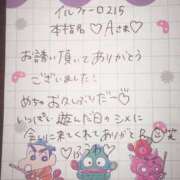 イルフォード215
本指名♡Aさま♡
お誘い頂いてありがとう
ございました!
めちゃお久しぶりだ〜♡
いっぱい遊んだ日のシメに
会いに来てくれてありがとう笑